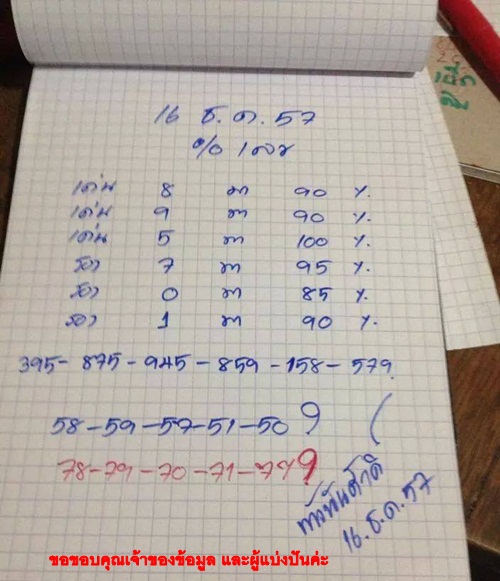 16 ธ.ค.57
% เลข
เด่น 8 มา 90 %
เด่น 9 มา 90 %
เด่น 5 มา 100 %
รอง 7 มา 95 %
รอง 0 มา 85 %
รอง 1 มา 90 %
395-875-945-859-158-579
58-59-57-51-50 ?
78-79-70-71-74 ?
16.ธ.ค.57
ขอขอบคุณเจ้าของข้อมูล และผู้แบ่งปันค่ะ